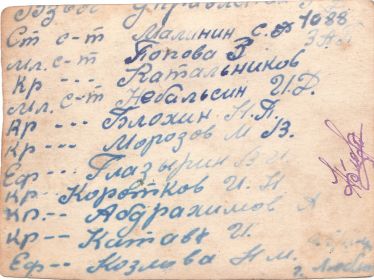 Взвод управления
Ст с-т Малинин С.Ф 1088
Мл. с-т Попова З. ЗАП
Кр --- Катальников
Мл. с-т Небальсин И.Д.
Кр --- Блохин Н.П.
Кр --- Морозов М В.
Еф --- Глазырин В
Кр -- Коротков И. Н
Кр -- Абдрахимов А
Кр -- Китаев И.
Еф -- Козлова Н м.
г.